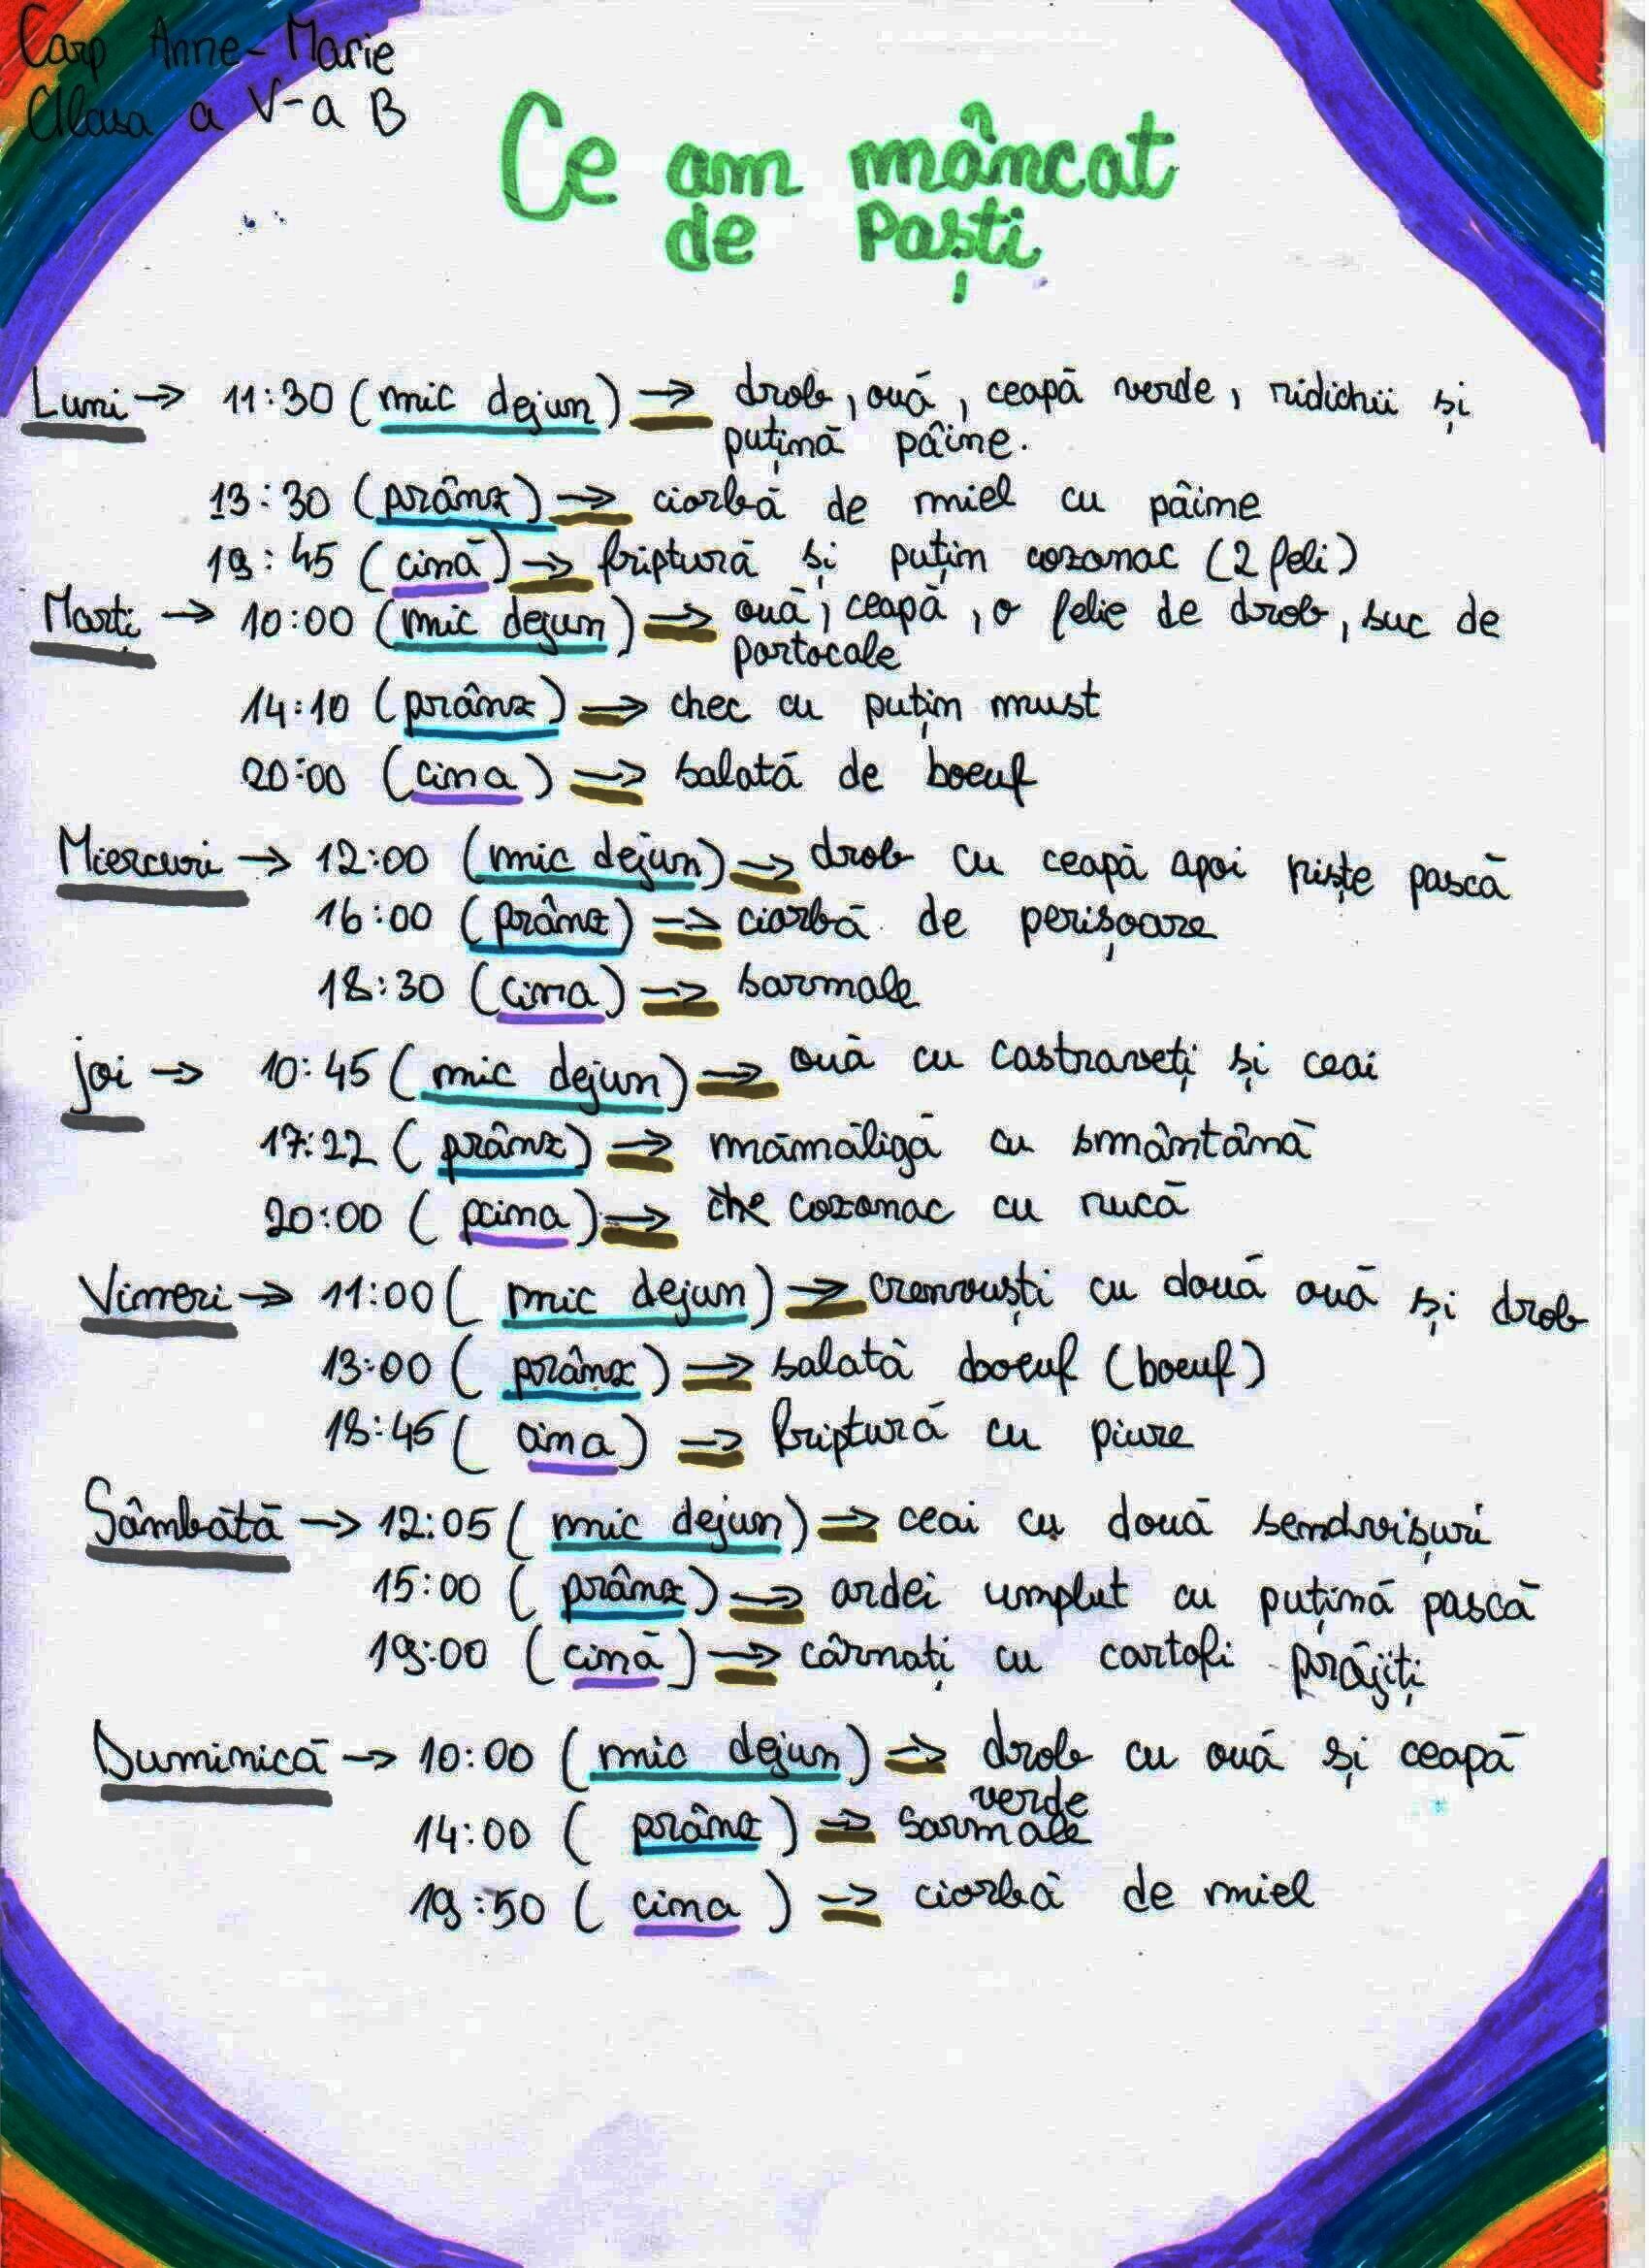 Carp Anne-Marie
Clasa a V-a B
Ce am mâncat
de Paști
Luni → 11:30 (mic dejun) → drob, ouă, ceapă verde, ridichii și
puțină pâine.
13:30 (prânz) → ciorbă de miel cu pâine
19:45 (cină) → friptură și puțin cozonac (2 feli)
Marți → 10:00 (mic dejun) → ouă, ceapă, o felie de drob, suc de
portocale
14:10 (prânz) → chec cu puțin must
20:00 (cina) → salată de boeuf
Miercuri → 12:00 (mic dejun) → drob cu ceapă apoi niște pască
16:00 (prânz) → ciorbă de perișoare
18:30 (cina) → sarmale
joi → 10:45 (mic dejun) → ouă cu castraveți și ceai
17:22 (prânz) → mămăligă cu smântână
20:00 (cina) → cozonac cu nucă
Vineri → 11:00 (mic dejun) → crenvuști cu două ouă și drob
13:00 (prânz) → salată boeuf (boeuf)
18:45 (cina) → friptură cu piure
Sâmbătă → 12:05 (mic dejun) → ceai cu două sendvișuri
15:00 (prânz) → ardei umplut cu puțină pască
19:00 (cină) → cârnați cu cartofi prăjiți
Duminică → 10:00 (mic dejun) → drob cu ouă și ceapă
verde
14:00 (prânz) → sarmale
19:50 (cina) → ciorbă de miel